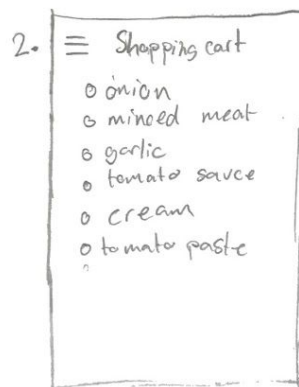 2.
Shopping cart
onion
minced meat
garlic
tomato sauce
cream
tomato paste